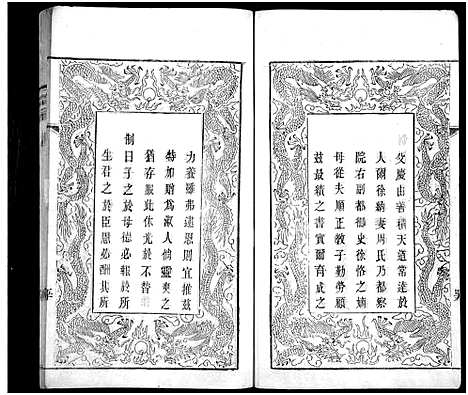 慶由善積天道常達於
人爾徐綺妻周氏乃都察
院右副都御史徐恪之嫡
母從夫順正教子勤勞顧
茲最績之書實爾育成之
力養雖弗逮恩則宜推茲
特加贈為淑人倘靈爽之
猶存服此休光於不替
制曰子之於母德必報於所
生君之於臣恩必酬其所